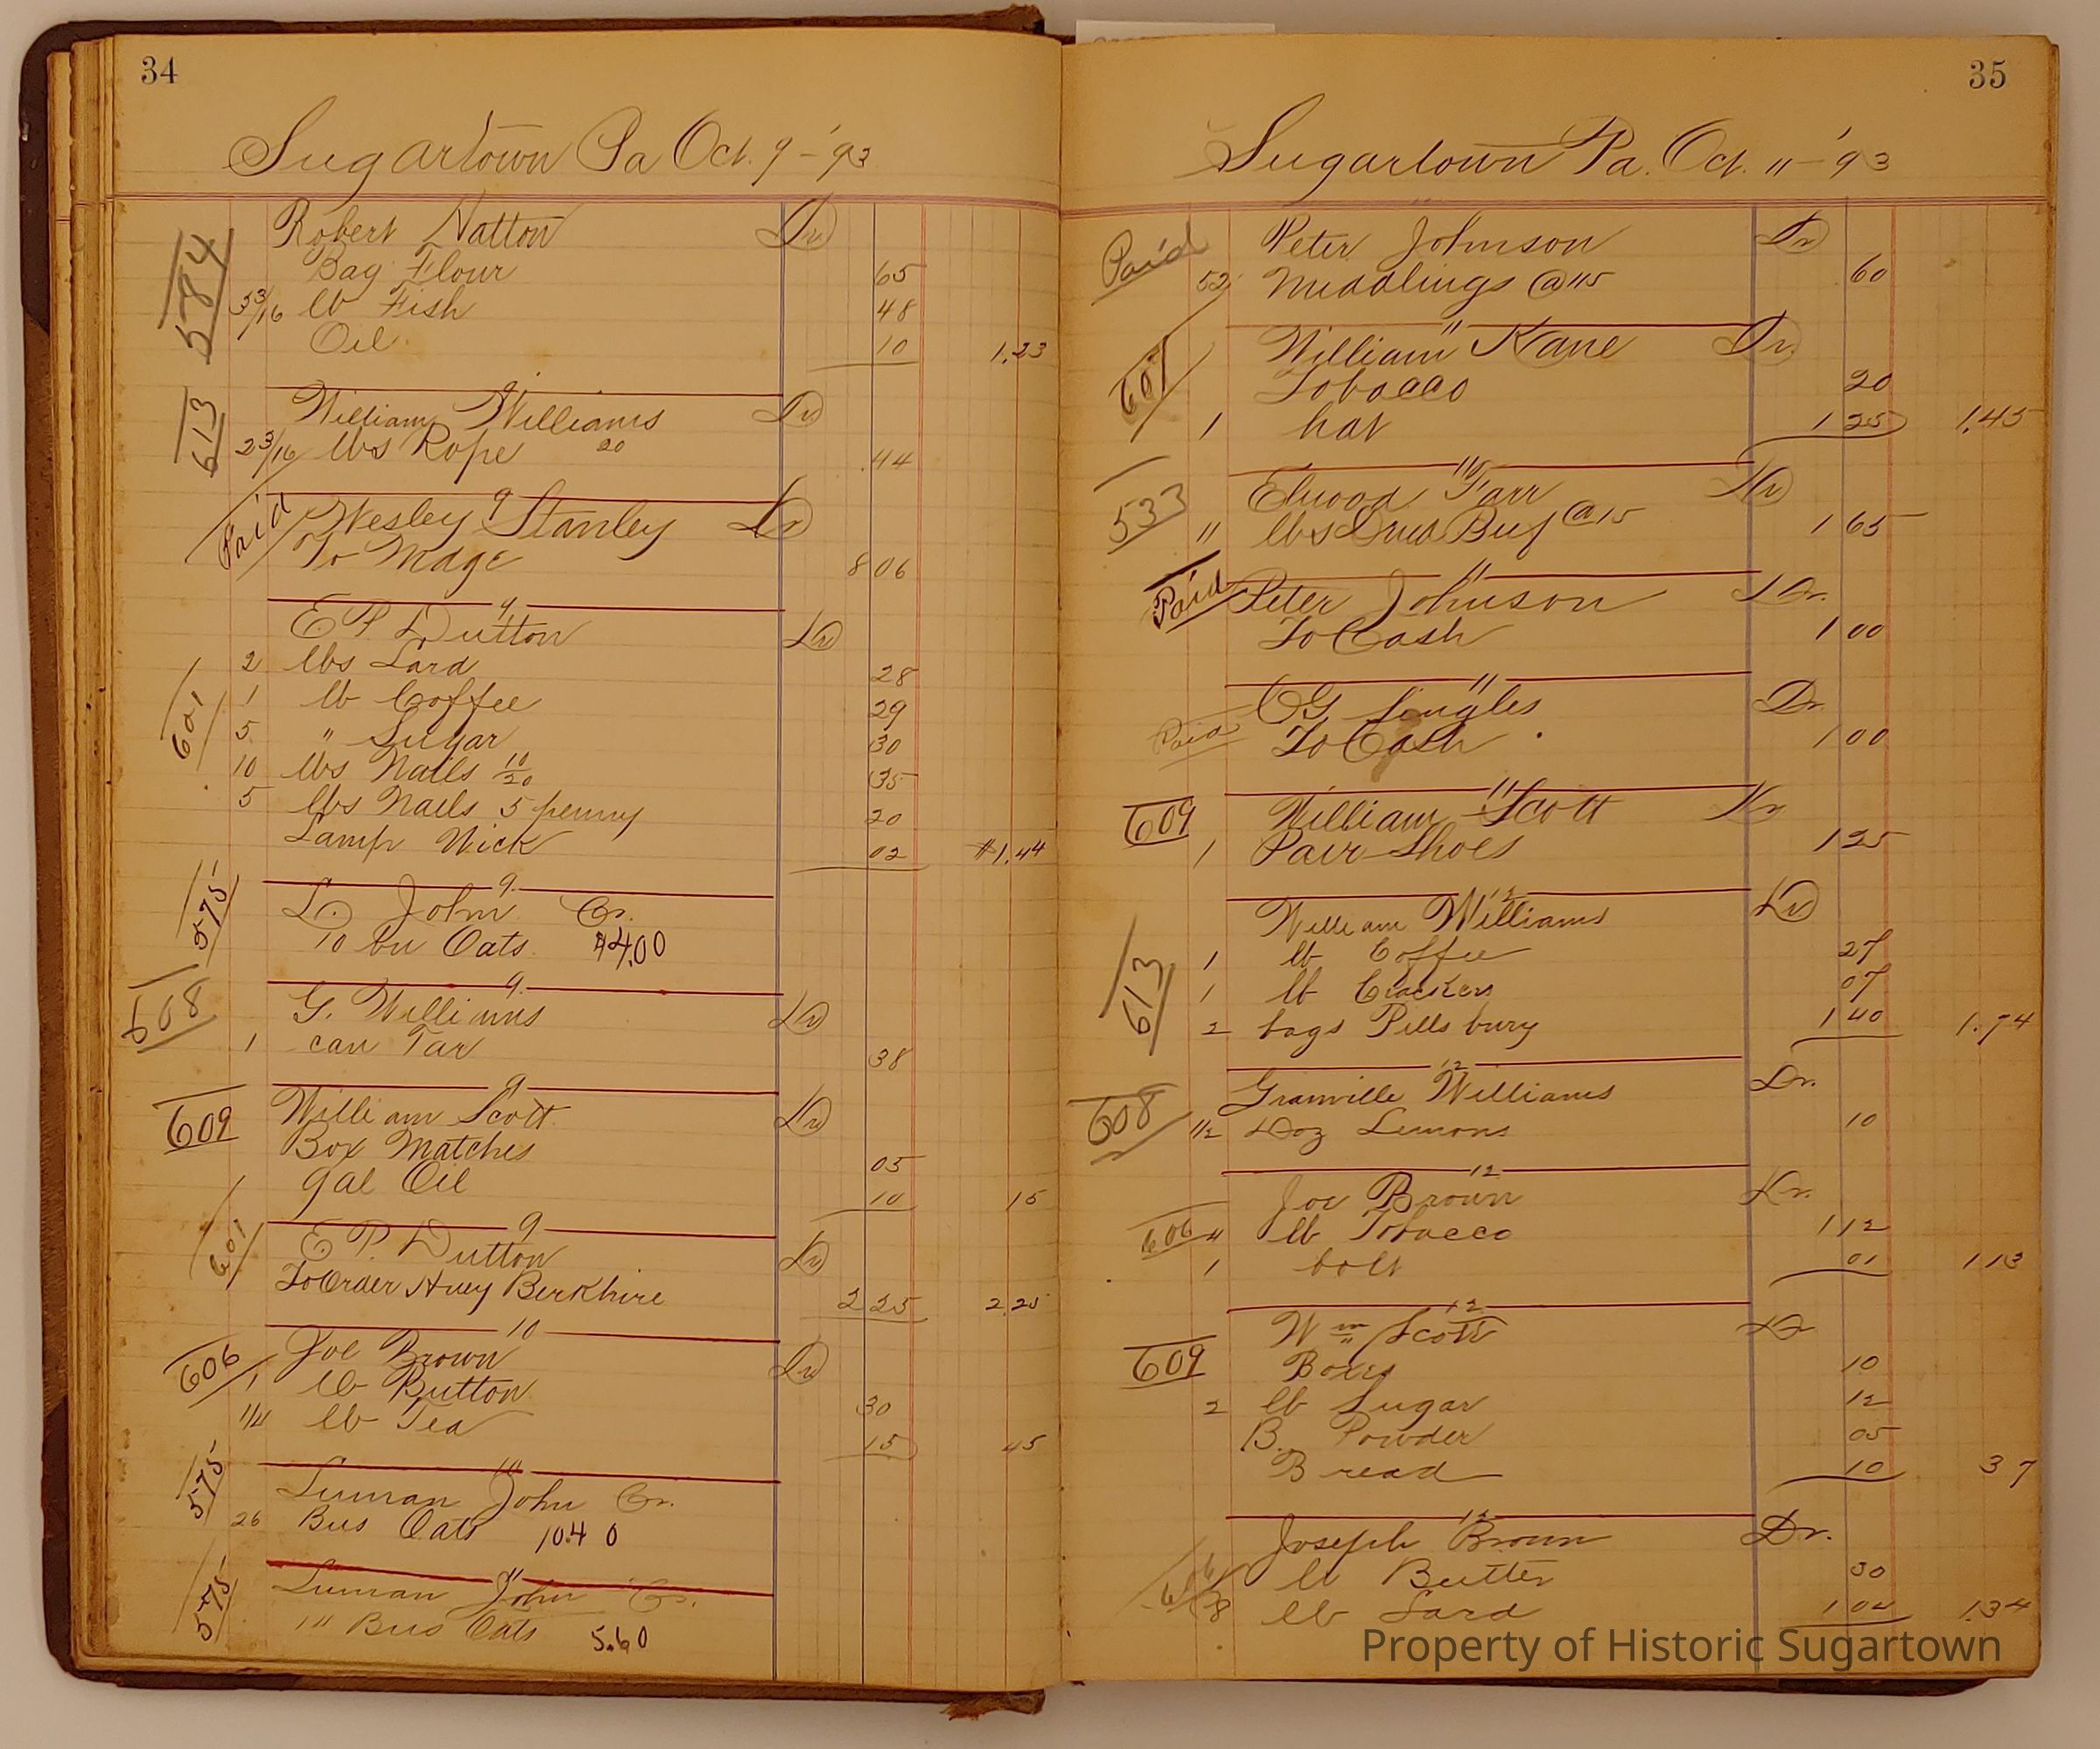 34
Sugartown Pa Oct. 9 - '93
584
Robert Hatton Dr
Bag Flour 65
3 3/16 lb Fish 48
Oil 10 1.23
613
William Williams Dr
2 3/16 lbs Rope 20 .44
Paid
9
Wesley Stanley Dr
To Madge 8 06
9
E P. Dutton Dr
601
2 lbs Lard 28
1 lb Coffee 29
5 " Sugar 30
10 lbs Nails 10/20 35
5 lbs Nails 5 penny 20
Lamp Wick 02 $1.44
575
9.
L. John Cr.
10 bu Oats $4.00
608
9.
G. Williams Dr
1 can Tar 38
609
9
William Scott Dr
Box Matches 05
gal Oil 10 15
601
9
E P. Dutton Dr
To Order Berkhire 2 25 2.25
606
10
Joe Brown Dr
1 lb Button 30
1/4 lb Tea 15 45
575
Luman John Cr.
26 Bus Oats 10.4 0
575
11
Luman John Cr.
Bus Oats 5.60
35
Sugartown Pa. Oct. 11 - '93
Paid
Peter Johnson Dr
52 Middlings @ 115 60
607
11
William Kane Dr.
Tobacco 20
1 hat 1 25 1.45
533
11
Elwood Farr Dr
11 lbs Dried Beef @ 15 1 65
Paid
11
Peter Johnson Dr.
To Cash 1 00
Paid
11
To Cash 1 00
609
11
William Scott Dr
1 Pair Shoes 1 25
613
12
William Williams Dr
1 lb Coffee 27
1 lb Crackers 07
2 bags Pillsbury 1 40 1.74
608
12
Granville Williams Dr.
1/2 Doz Lemons 10
606
12
Joe Brown Dr.
4 lb Tobacco 1 12
1 bolt 01 1 13
609
12
Wm Scott Dr
Boxes 10
2 lb Sugar 12
B. Powder 05
Bread 10 37
606
12
Joseph Brown Dr.
1 lb Butter 30
8 lb Lard 1 04 1.34
Property of Historic Sugartown